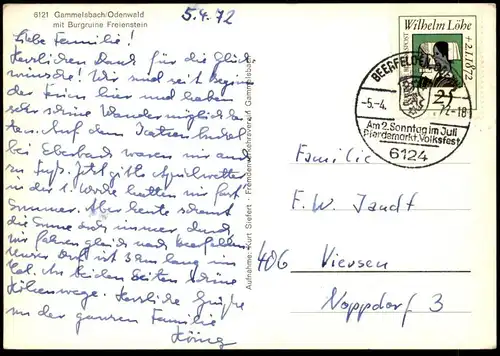 6121 Gammelsbach/Odenwald
mit Burgruine Freienstein
5.4.72
Liebe Familie!
Herzlichen Dank für die Glück-
wünsche! Wir sind seit Beginn
der Ferien hier und haben
sehr schöne Wandermöglichkei-
ten. Auf dem
bei Eberbach waren wir auch
zu Fuß. Jetzt gibts Aprilwetter
in der 1. Woche hatten wir fast
Sommer. Aber heute scheint
die Sonne doch immer durch
wir fahren gleich nach Beerfelden.
Unser Dorf ist 3 km lang im
Tal. An beiden Seiten schöne
Höhenwege. Herzliche Grüße
an der ganzen Familie
König
Aufnahme: Kurt Siefert - Fremdenverkehrsverein Gammelsbach
Wilhelm Löhe
+ 2.1.1872
25
BEERFELDEN
-5.-4.
72-18
Am 2. Sonntag im Juli
Pferdemarkt, Volksfest
6124
Familie
F.W. Jandt
406 Viersen
Noppdorf 3